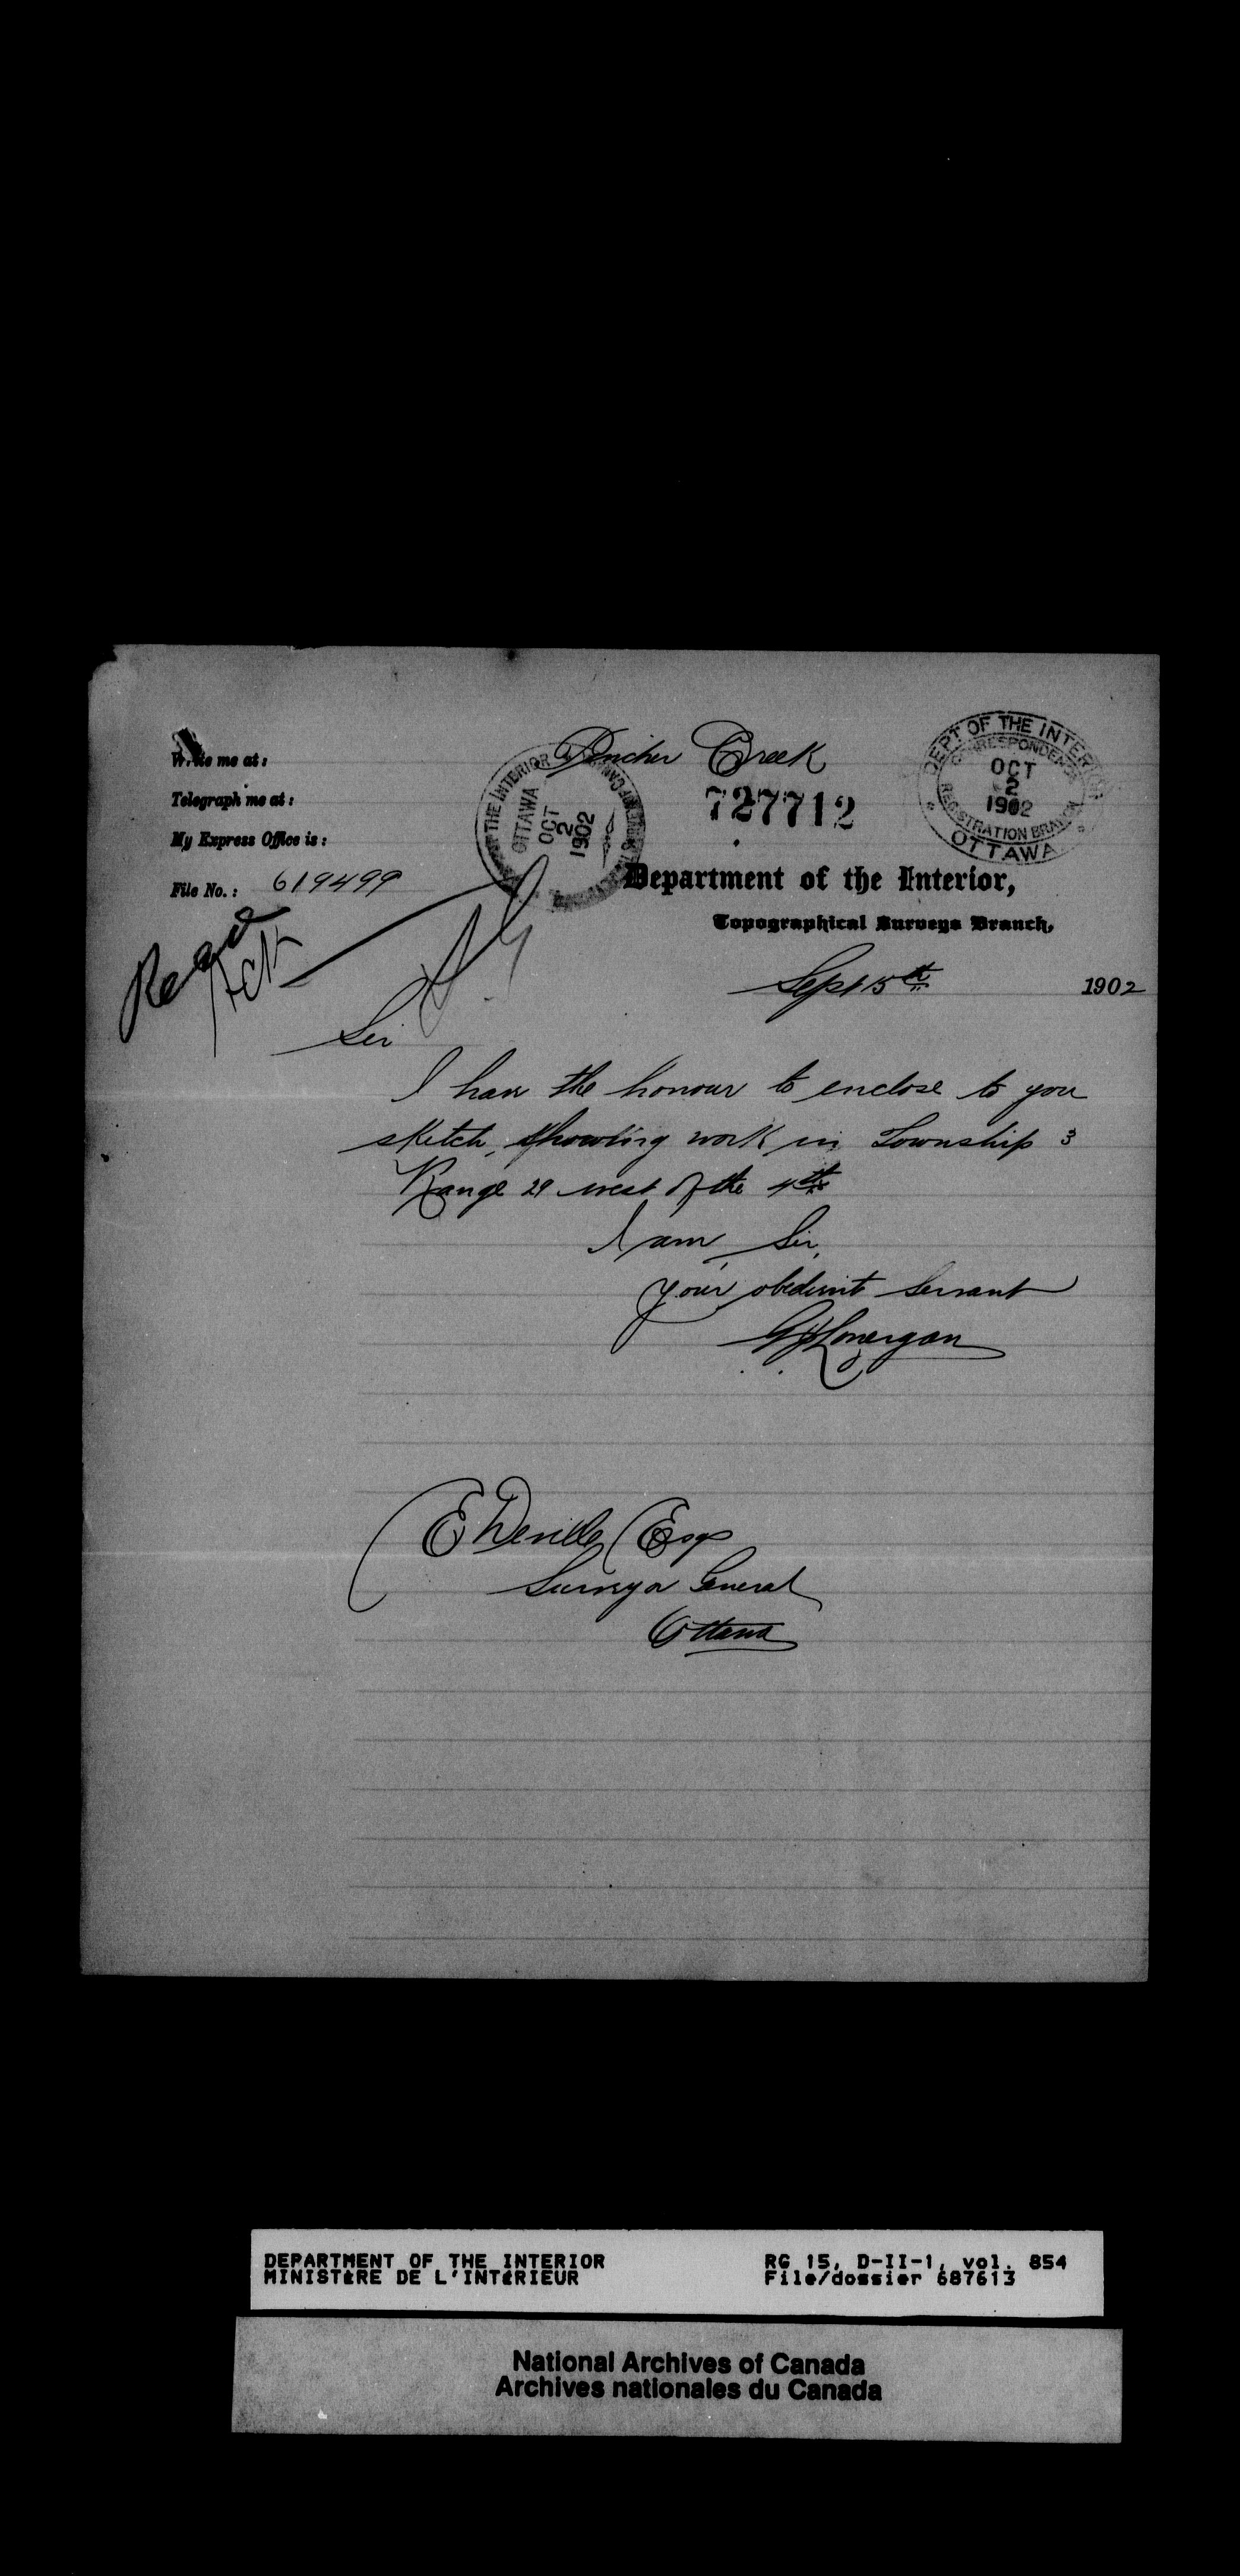 Pincher Creek
Write me at:
Telegraph me at:
My Express Office is:
File No.: 619499
727712
DEPT OF THE INTERIOR
CORRESPONDENTS
OCT
2
1902
REGISTRATION BRANCH
OTTAWA
THE INTERIOR
OTTAWA
OCT
2
1902
Department of the Interior,
Topographical Surveys Branch,
Sept 15th 1902
Ack
Sir
I have the honour to enclose to you
sketch, showing work in Township 3
Range 29 west of the 4th
I am, Sir,
your obedient servant
GJLonergan
E Deville Esq
Surveyor General
Ottawa
DEPARTMENT OF THE INTERIOR
MINISTÈRE DE L'INTÉRIEUR
RG 15, D-II-1, vol. 854
File/dossier 687613
National Archives of Canada
Archives nationales du Canada